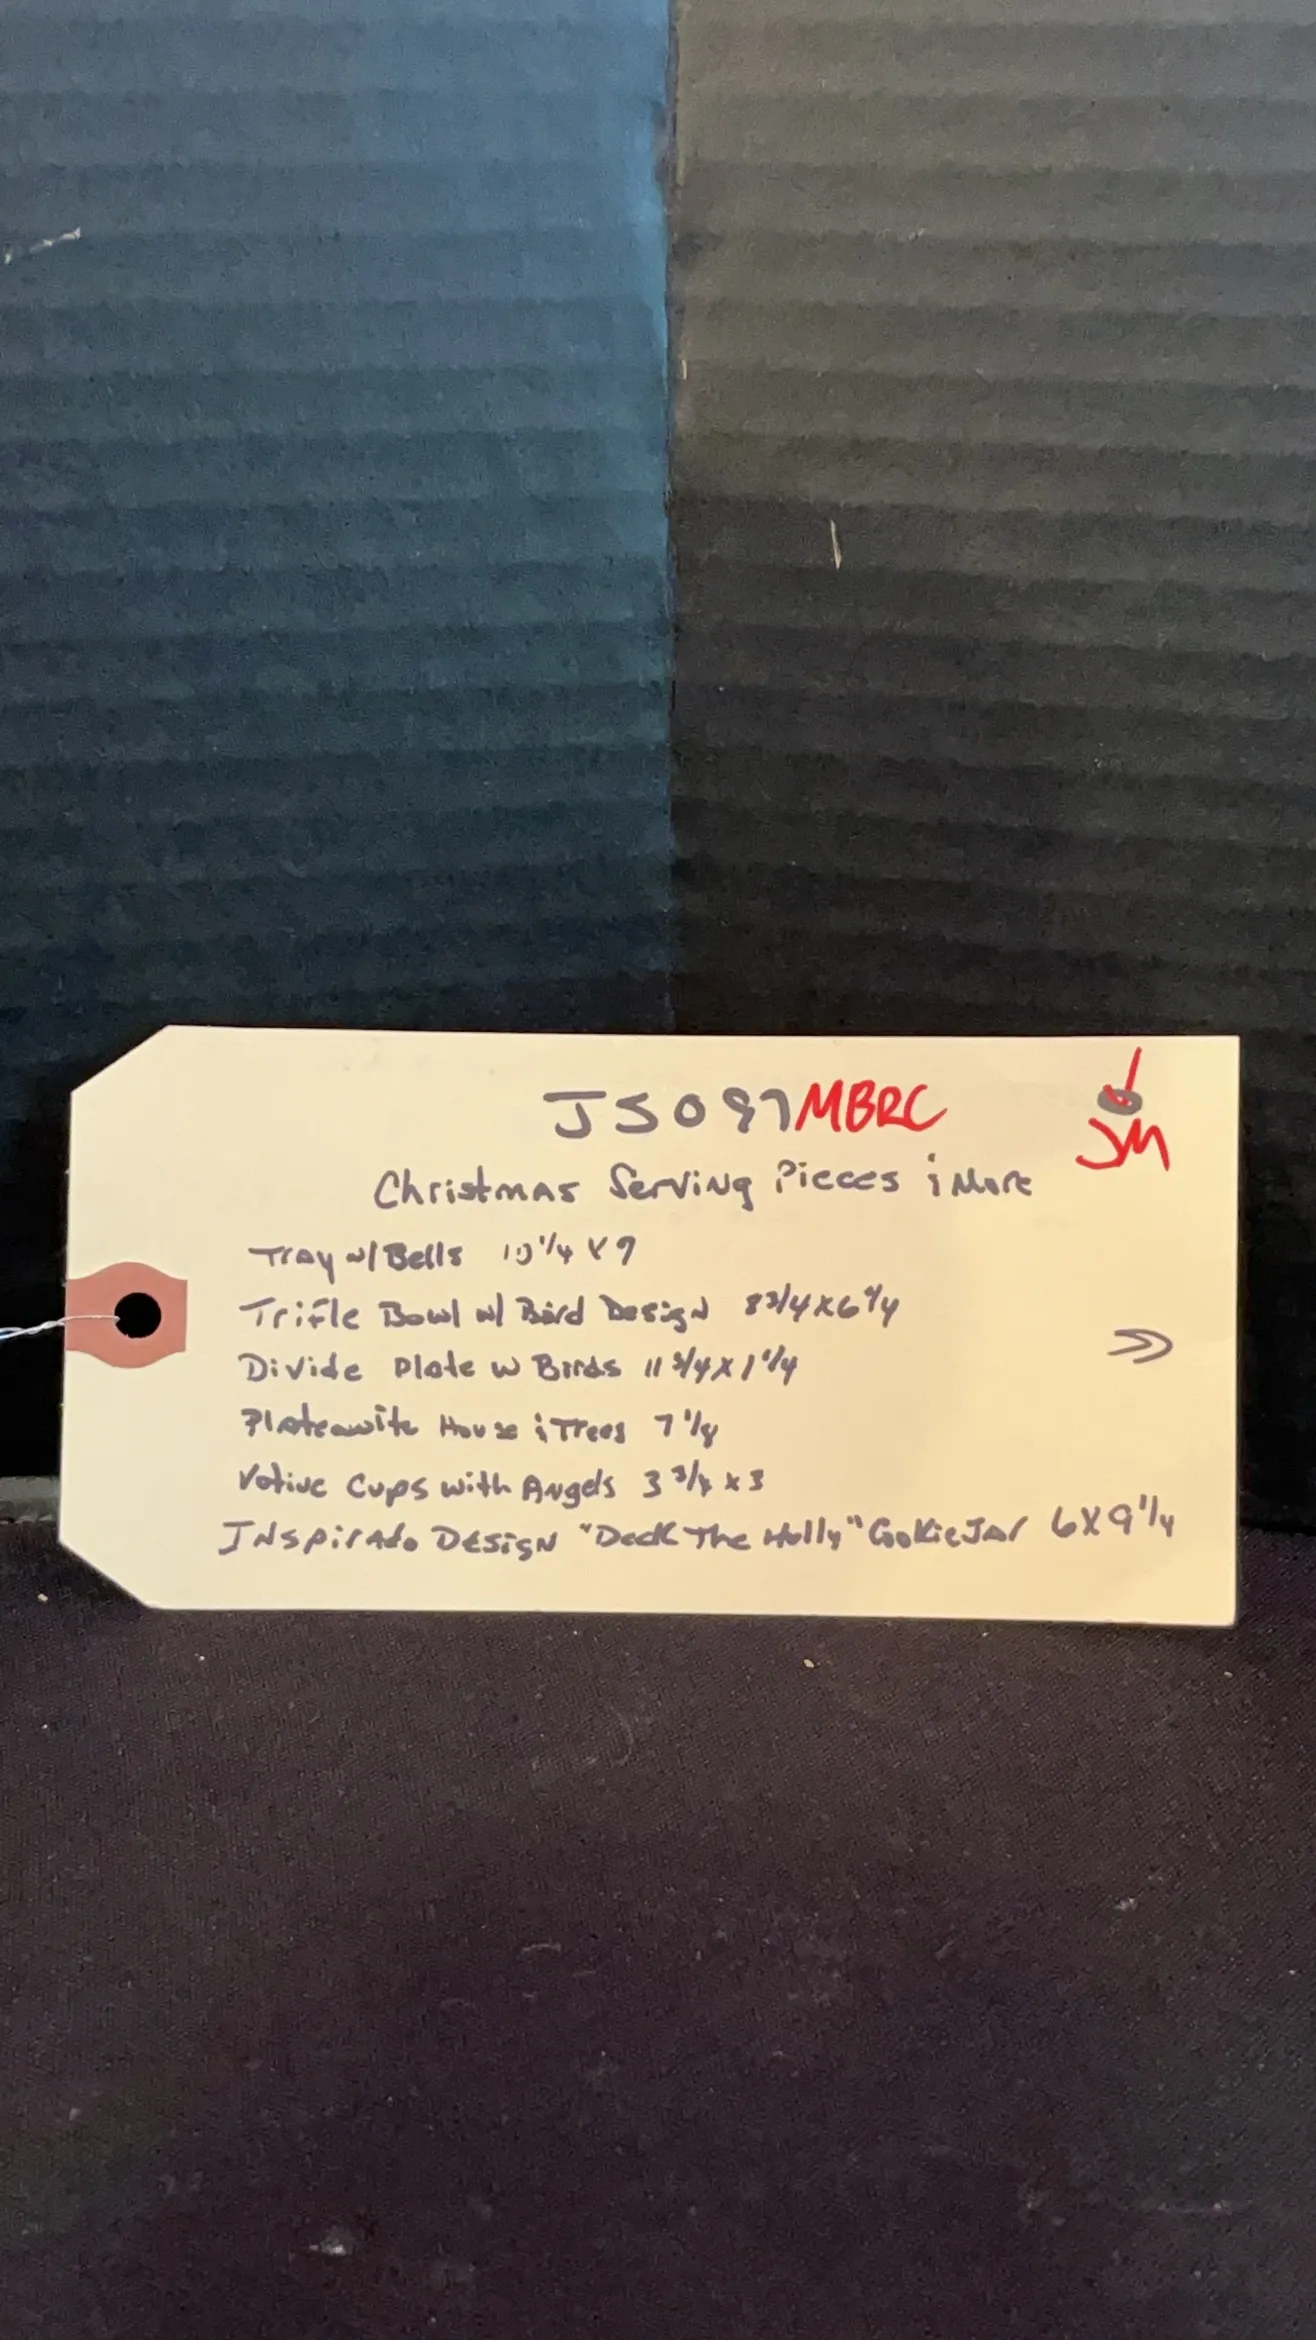 JS097MBRC
JM
Christmas Serving Pieces & More
Tray w/ Bells 10 1/4 X 9
Trifle Bowl w/ Bird Design 8 3/4 X 6 1/4
Divide Plate w Birds 11 3/4 X 1 1/4
Plate with House & Trees 7 1/8
Votive Cups with Angels 3 3/4 x 3
Inspirado Design "Deck The Holly" Cookie Jar 6 X 9 1/4